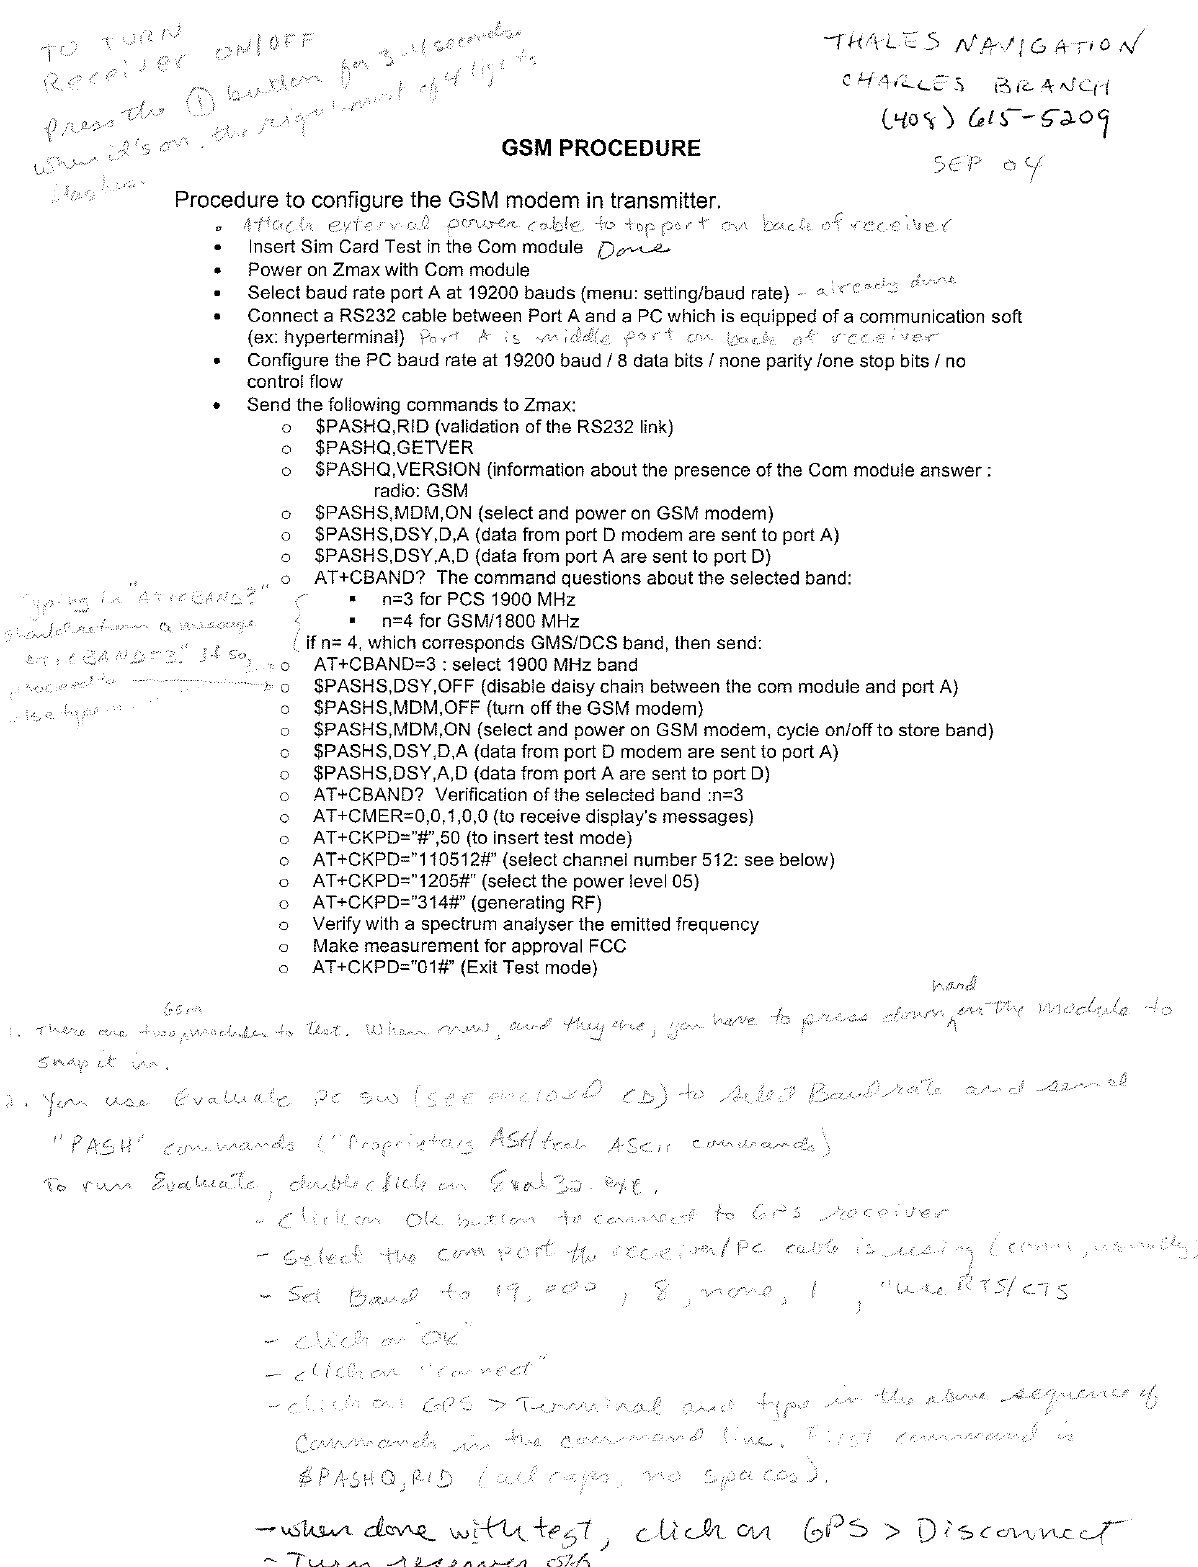 TO TURN
Receiver ON/OFF
Press the ① button for 3-4 seconds
when it's on, the right most of 4 lights
flashes.
THALES NAVIGATION
CHARLES BRANCH
(408) 615-5209
SEP 04
GSM PROCEDURE
Procedure to configure the GSM modem in transmitter.
• Attach external power cable to top port on back of receiver
• Insert Sim Card Test in the Com module Done
• Power on Zmax with Com module
• Select baud rate port A at 19200 bauds (menu: setting/baud rate) - already done
• Connect a RS232 cable between Port A and a PC which is equipped of a communication soft
(ex: hyperterminal) Port A is middle port on back of receiver
• Configure the PC baud rate at 19200 baud / 8 data bits / none parity /one stop bits / no
control flow
• Send the following commands to Zmax:
o $PASHQ,RID (validation of the RS232 link)
o $PASHQ,GETVER
o $PASHQ,VERSION (information about the presence of the Com module answer :
radio: GSM
o $PASHS,MDM,ON (select and power on GSM modem)
o $PASHS,DSY,D,A (data from port D modem are sent to port A)
o $PASHS,DSY,A,D (data from port A are sent to port D)
o AT+CBAND? The command questions about the selected band:
▪ n=3 for PCS 1900 MHz
▪ n=4 for GSM/1800 MHz
if n= 4, which corresponds GMS/DCS band, then send:
o AT+CBAND=3 : select 1900 MHz band
o $PASHS,DSY,OFF (disable daisy chain between the com module and port A)
o $PASHS,MDM,OFF (turn off the GSM modem)
o $PASHS,MDM,ON (select and power on GSM modem, cycle on/off to store band)
o $PASHS,DSY,D,A (data from port D modem are sent to port A)
o $PASHS,DSY,A,D (data from port A are sent to port D)
o AT+CBAND? Verification of the selected band :n=3
o AT+CMER=0,0,1,0,0 (to receive display's messages)
o AT+CKPD="#",50 (to insert test mode)
o AT+CKPD="110512#" (select channel number 512: see below)
o AT+CKPD="1205#" (select the power level 05)
o AT+CKPD="314#" (generating RF)
o Verify with a spectrum analyser the emitted frequency
o Make measurement for approval FCC
o AT+CKPD="01#" (Exit Test mode)
Typing in "AT+CBAND?"
should return a message
AT+CBAND=3." If so,
proceed to
else type
1. There are two GSM modules to test. When new, and they are, you have to press down hard on the module to
snap it in.
2. You use Evaluate PC SW (see enclosed CD) to select Baud rate and send
"PASH" commands ("Proprietary ASHtech ASCII commands)
To run Evaluate, double click on Eval32.exe.
- Click on OK button to connect to GPS receiver
- Select the com port the receiver/PC cable is using (com1, usually)
- Set Baud to 19,000, 8, none, 1, "use RTS/CTS
- click on "OK"
- click on "connect"
- click on GPS > Terminal and type in the above sequence of
Commands in the command line. First command is
$PASHQ,RID (all caps, no spaces).
- when done with test, click on GPS > Disconnect
- Turn receiver off